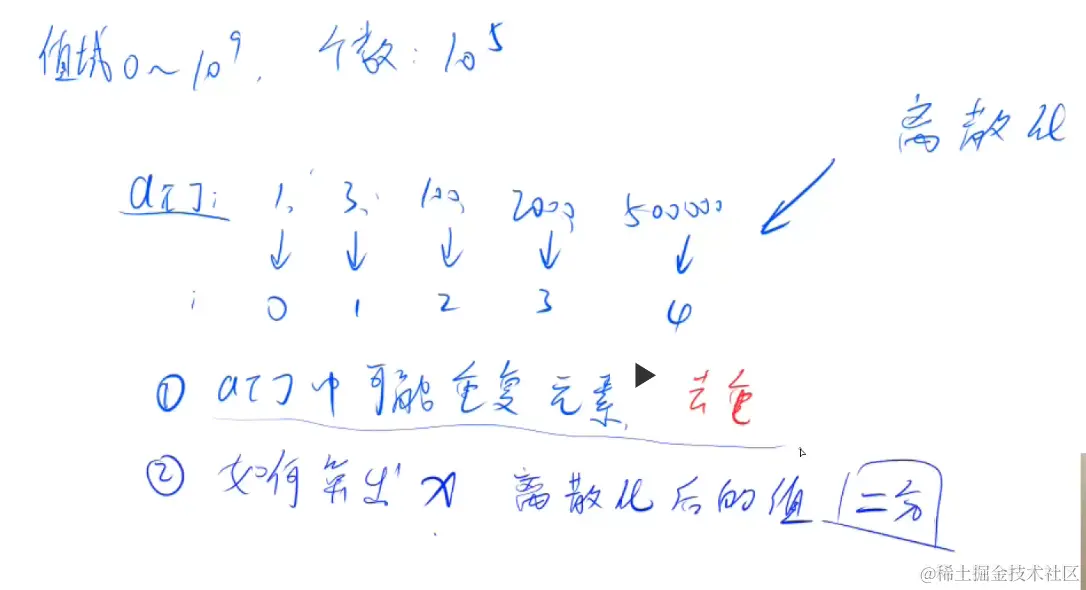 值域0~10^9, 个数: 10^5
离散化
a[]: 1, 3, 100, 2000, 500000
i 0 1 2 3 4
① a[]中可能重复元素, 去重
② 如何算出 x 离散化后的值 二分
@稀土掘金技术社区